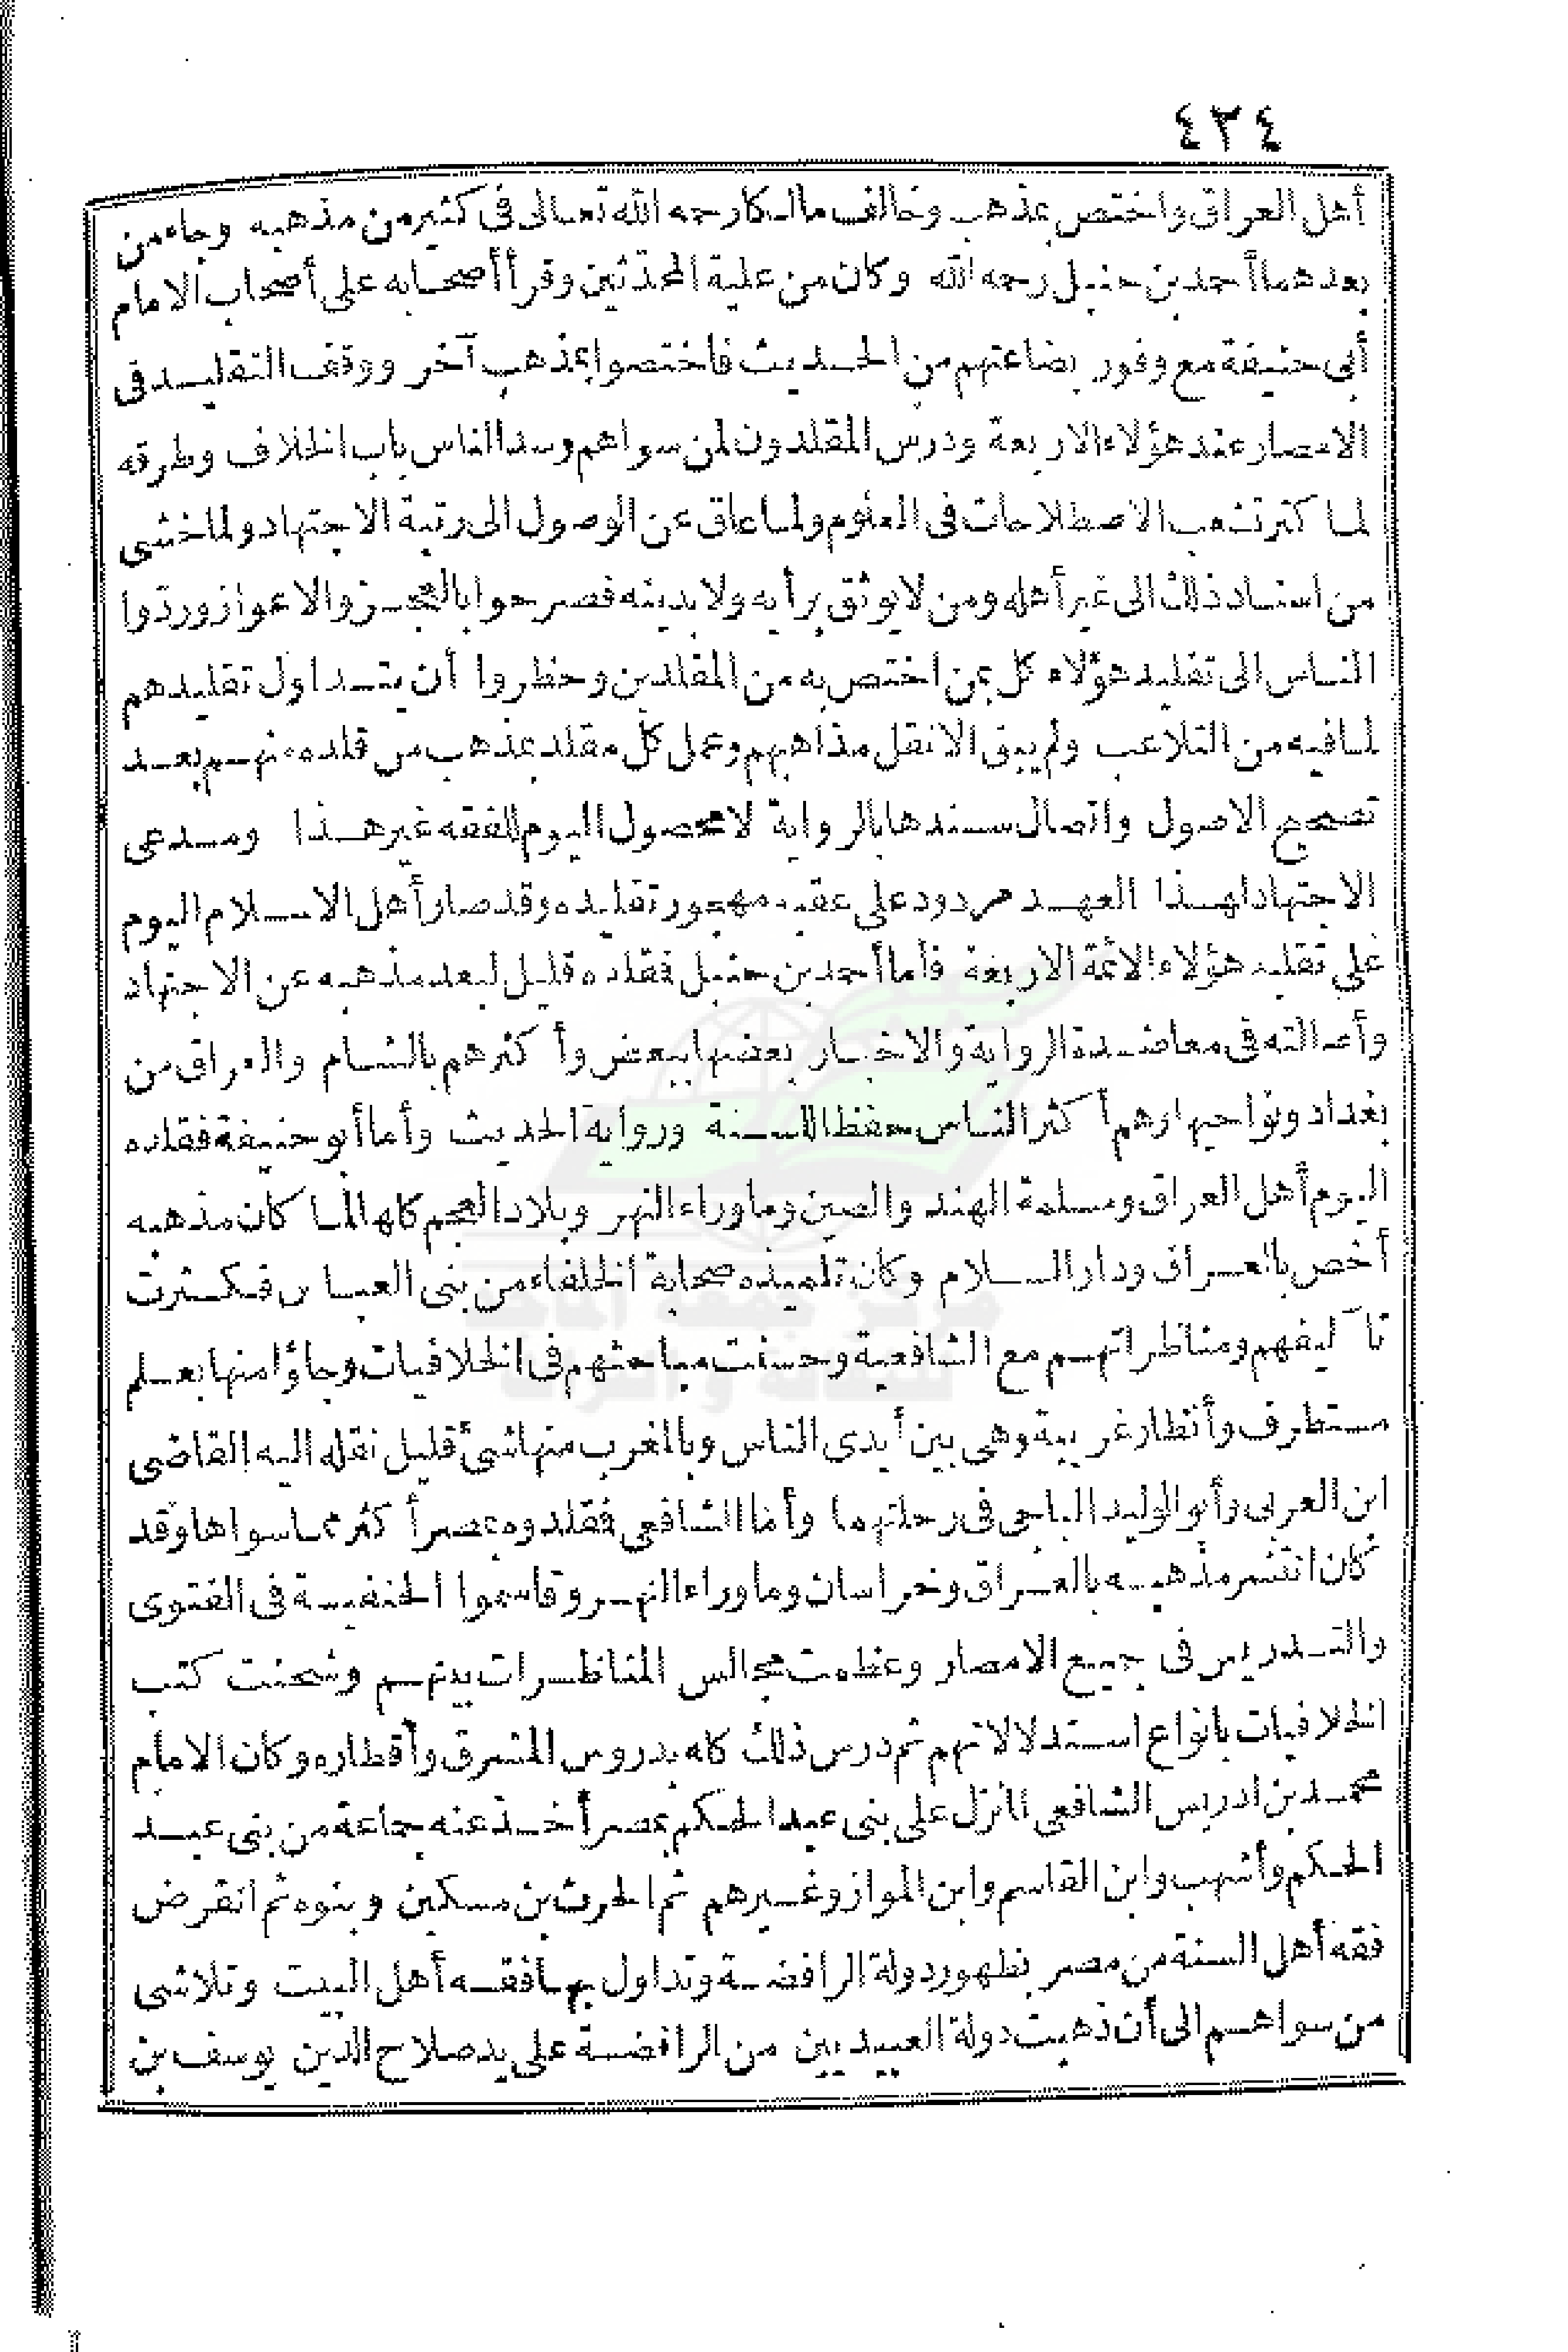 ٤٢٤
أهل العراق واختص بمذهب وخالف مالكا رحمه الله تعالى فى كثير من مذهبه وجاء من
بعدهما أحمد بن حنبل رحمه الله وكان من علية المحدّثين وقرأ أصحابه على أصحاب الامام
أبى حنيفة مع وفور بضاعتهم من الحديث فاختصوا بمذهب آخر ووقف التقليد فى
الامصار عند هؤلاء الاربعة ودرس المقلدون لمن سواهم وسد الناس باب الخلاف وطرقه
لما كثر تشعب الاصطلاحات فى العلوم ولما عاق عن الوصول الى رتبة الاجتهاد ولما خشى
من اسناد ذلك الى غير أهله ومن لا يوثق برأيه ولا بدينه فصرحوا بالعجز والاعواز وردّوا
الناس الى تقليد هؤلاء كل بمن اختص به من المقلدين وحظروا أن يتداول تقليدهم
لما فيه من التلاعب ولم يبق الا نقل مذاهبهم وعمل كل مقلد بمذهب من قلده منهم بعد
تصحيح الاصول واتصال سندها بالرواية لا محصول اليوم للفقه غير هذا ومدعى
الاجتهاد لهذا العهد مردود على عقبه مهجور تقليده وقد صار أهل الاسلام اليوم
على تقليد هؤلاء الائمة الاربعة فأما أحمد بن حنبل فمقلده قليل لبعد مذهبه عن الاجتهاد
وأصالته فى معاضدة الرواية والاخبار بعضها ببعض وأكثرهم بالشام والعراق من
بغداد ونواحيها وهم أكثر الناس حفظا للسنة ورواية الحديث وأما أبو حنيفة فقلده
اليوم أهل العراق ومسلمة الهند والصين وما وراء النهر وبلاد العجم كلها لما كان مذهبه
أخص بالعراق ودار السلام وكان تلميذه صحابة الخلفاء من بنى العباس فكثرت
تآليفهم ومناظراتهم مع الشافعية وحسنت مباحثهم فى الخلافيات وجاؤا منها بعلم
مستظرف وأنظار غريبة وهى بين أيدى الناس وبالمغرب منها شئ قليل نقله اليه القاضى
ابن العربى وأبو الوليد الباجى فى رحلتهما وأما الشافعى فقلدوه بمصر أكثر مما سواها وقد
كان انتشر مذهبه بالعراق وخراسان وما وراء النهر وقاسموا الحنفية فى الفتوى
والتدريس فى جميع الامصار وعظمت مجالس المناظرات بينهم وشحنت كتب
الخلافيات بانواع استدلالاتهم ثم درس ذلك كله بدروس المشرق وأقطاره وكان الامام
محمد بن ادريس الشافعى لما نزل على بنى عبد الحكم بمصر أخذ عنه جماعة من بنى عبد
الحكم وأشهب وابن القاسم وابن المواز وغيرهم ثم الحرث بن مسكين وبنوه ثم انقرض
فقه أهل السنة من مصر بظهور دولة الرافضة وتداول بها فقه أهل البيت وتلاشى
من سواهم الى أن ذهبت دولة العبيديين من الرافضة على يد صلاح الدين يوسف بن
مركز جمعة الماجد
للثقافة والتراث